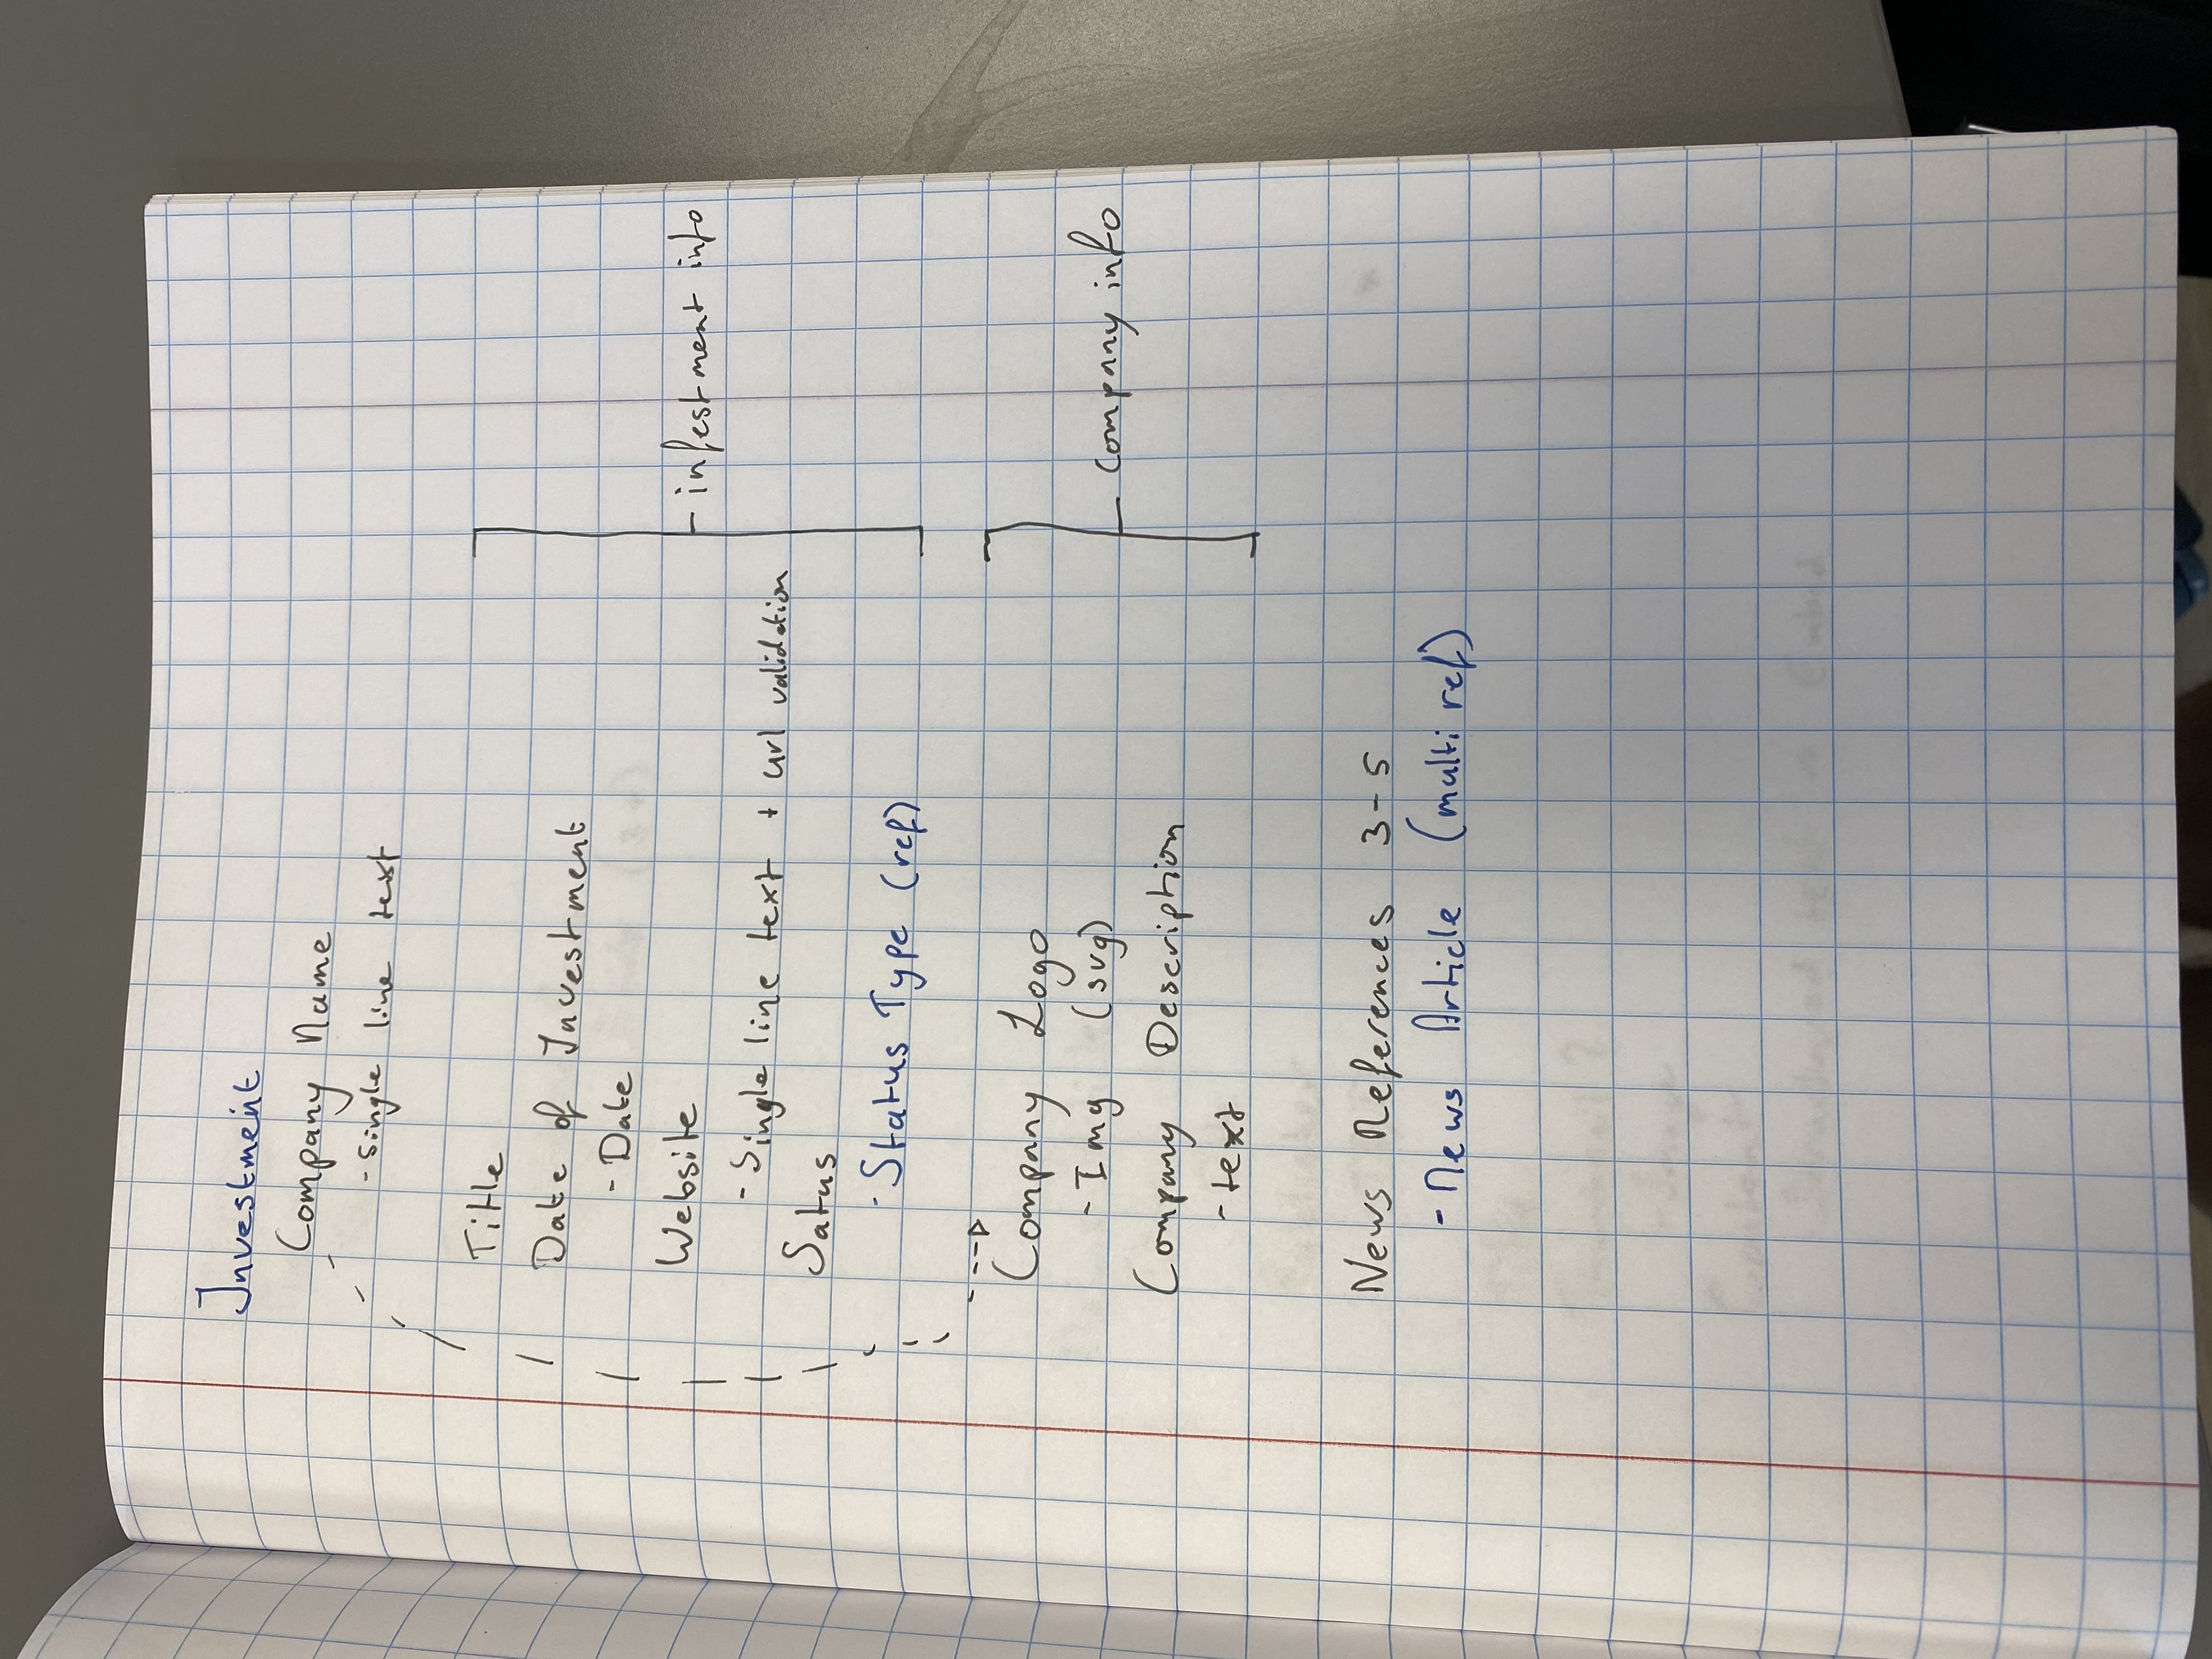 Investment
Company Name
- Single line text
Title
Date of Investment
- Date
Website
- Single line text + url validation
Satus
- Status Type (ref)
infestment info
Company Logo
- Img (svg)
Company Description
- text
company info
News References 3-5
- News Article (multi ref)